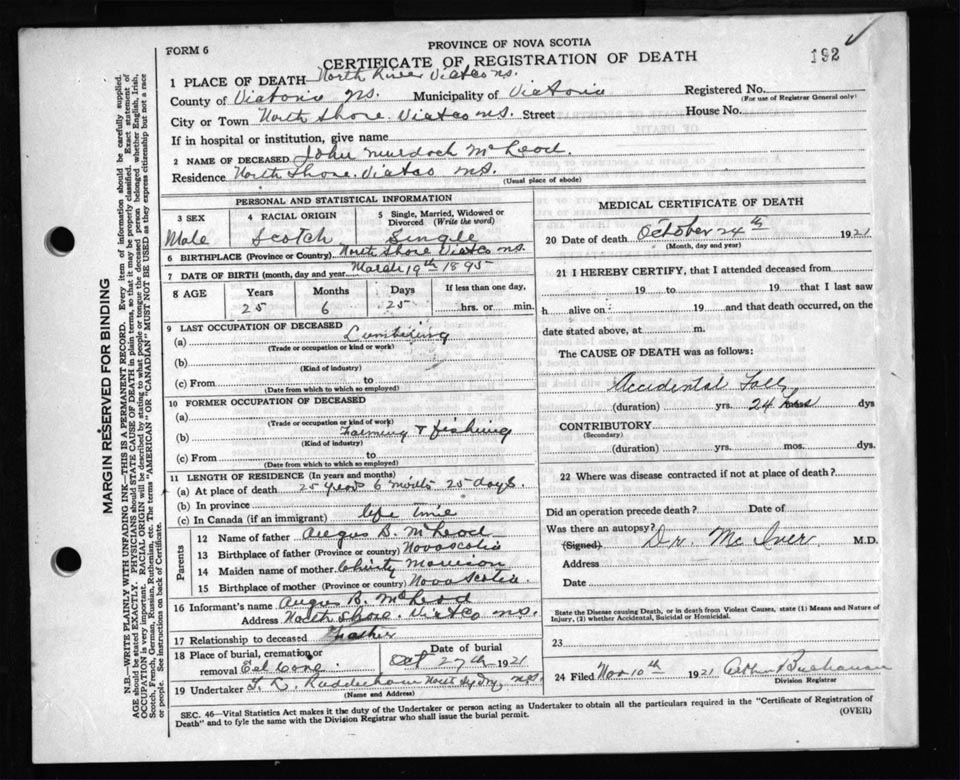 FORM 6
PROVINCE OF NOVA SCOTIA
CERTIFICATE OF REGISTRATION OF DEATH
192
1 PLACE OF DEATH North River Victco ns.
County of Victoria NS. Municipality of Victoria Registered No.
(For use of Registrar General only)
City or Town North Shore. Victco N.S. Street House No.
If in hospital or institution, give name
2 NAME OF DECEASED John Murdoch McLeod.
Residence North Shore. Victco N.S.
(Usual place of abode)
PERSONAL AND STATISTICAL INFORMATION
3 SEX
Male
4 RACIAL ORIGIN
Scotch
5 Single, Married, Widowed or Divorced (Write the word)
Single
6 BIRTHPLACE (Province or Country) North Shore Victco ns.
7 DATE OF BIRTH (month, day and year) March 19th 1895
8 AGE Years Months Days If less than one day,
25 6 25 hrs. or min.
9 LAST OCCUPATION OF DECEASED
(a) Lumbering
(Trade or occupation or kind or work)
(b)
(Kind of industry)
(c) From to
(Date from which to which so employed)
10 FORMER OCCUPATION OF DECEASED
(a)
(Trade or occupation or kind of work)
(b) Farming & fishing
(Kind of industry)
(c) From to
(Date from which to which so employed)
11 LENGTH OF RESIDENCE (In years and months)
(a) At place of death 25 years 6 months 25 days.
(b) In province
(c) In Canada (if an immigrant) life time
Parents
12 Name of father Angus B. McLeod
13 Birthplace of father (Province or country) Novascotia
14 Maiden name of mother Christy Morrison
15 Birthplace of mother (Province or country) Nova Scotia.
16 Informant's name Angus B. McLeod
Address North Shore. Victco ns.
17 Relationship to deceased Father
18 Place of burial, cremation or removal Eel Cove
Date of burial
Oct 27th 1921
19 Undertaker North Sydney N.S.
(Name and Address)
MEDICAL CERTIFICATE OF DEATH
20 Date of death October 24th 1921
(Month, day and year)
21 I HEREBY CERTIFY, that I attended deceased from
19 to 19 that I last saw
h alive on 19 and that death occurred, on the
date stated above, at m.
The CAUSE OF DEATH was as follows:
Accidental Fall
(duration) yrs. 24 hours dys
CONTRIBUTORY
(Secondary)
(duration) yrs. mos. dys.
22 Where was disease contracted if not at place of death?
Did an operation precede death? Date of
Was there an autopsy?
(Signed) Dr. McIver M.D.
Address
Date
State the Disease causing Death, or in death from Violent Causes, state (1) Means and Nature of
Injury, (2) whether Accidental, Suicidal or Homicidal.
23
24 Filed Nov 10th 1921 Arthur Buchanan
Division Registrar
SEC. 46—Vital Statistics Act makes it the duty of the Undertaker or person acting as Undertaker to obtain all the particulars required in the "Certificate of Registration of
Death" and to fyle the same with the Division Registrar who shall issue the burial permit.
(OVER)
MARGIN RESERVED FOR BINDING
N.B.—WRITE PLAINLY WITH UNFADING INK—THIS IS A PERMANENT RECORD. Every item of information should be carefully supplied.
AGE should be stated EXACTLY. PHYSICIANS should STATE CAUSE OF DEATH in plain terms, so that it may be properly classified. Exact statement of
OCCUPATION is very important. RACIAL ORIGIN will be described by stating to what people or tongue the deceased person belonged whether English, Irish,
Scotch, French, German, Russian, Ruthenian, etc. The terms "AMERICAN" OR "CANADIAN" MUST NOT BE USED as they express citizenship but not a race
or people. See instructions on back of Certificate.